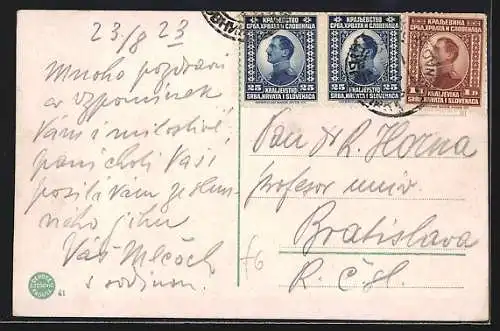 23/8 23
Mnoho pozdravů
a vzpomínek
Vám i milostivé
paní choti Vaší
posílá Vám ze slun-
ného jihu
Váš Mlčoch
s rodinou.
КРАЉЕВСТВО
СРБА, ХРВАТА И СЛОВЕНАЦА
25 25
KRALJEVSTVO
SRBA, HRVATA I SLOVENACA
КРАЉЕВСТВО
СРБА, ХРВАТА И СЛОВЕНАЦА
25 25
KRALJEVSTVO
SRBA, HRVATA I SLOVENACA
КРАЉЕВИНА
СРБА, ХРВАТА И СЛОВЕНАЦА
KRALJEVINA
SRBA, HRVATA I SLOVENACA
Pan Dr R. Horna
profesor univ.
Bratislava
R. Čsl.
61